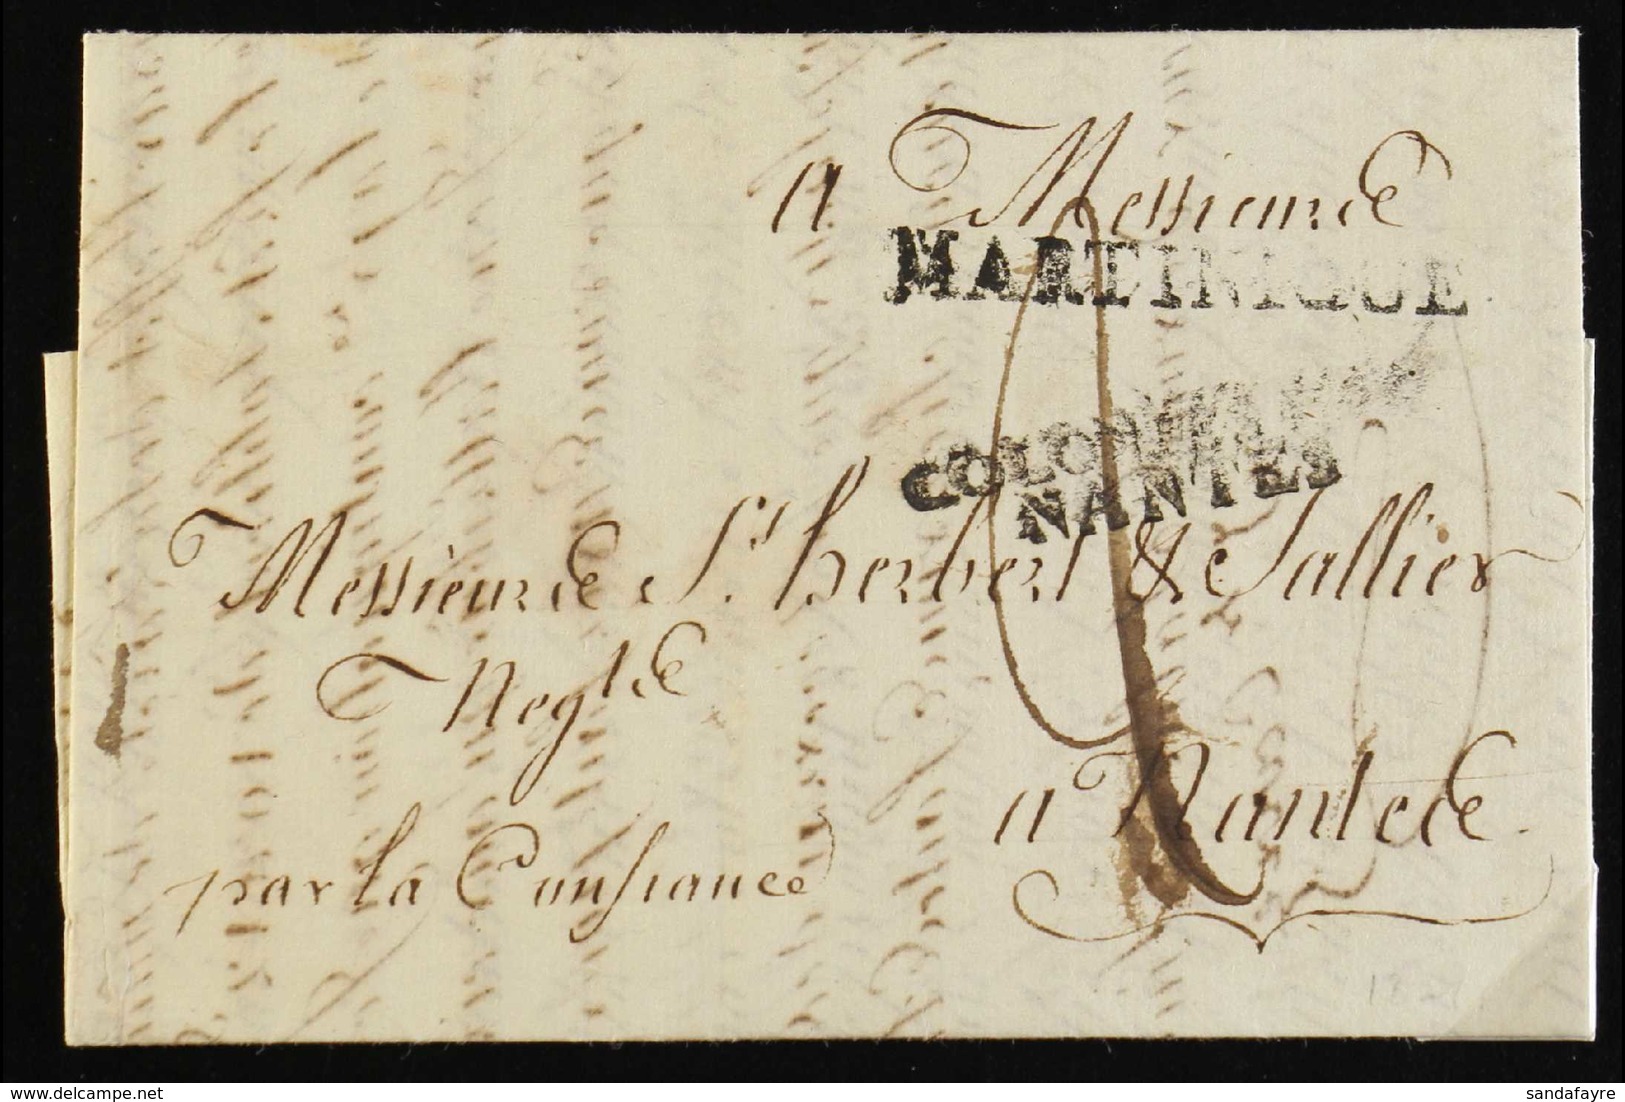 a Messieurs
MARTINIQUE
COLONIES PAR
NANTES
Messieurs St. herbert & Sallier
Negts
a Nantes
par la Confiance
sandafayre